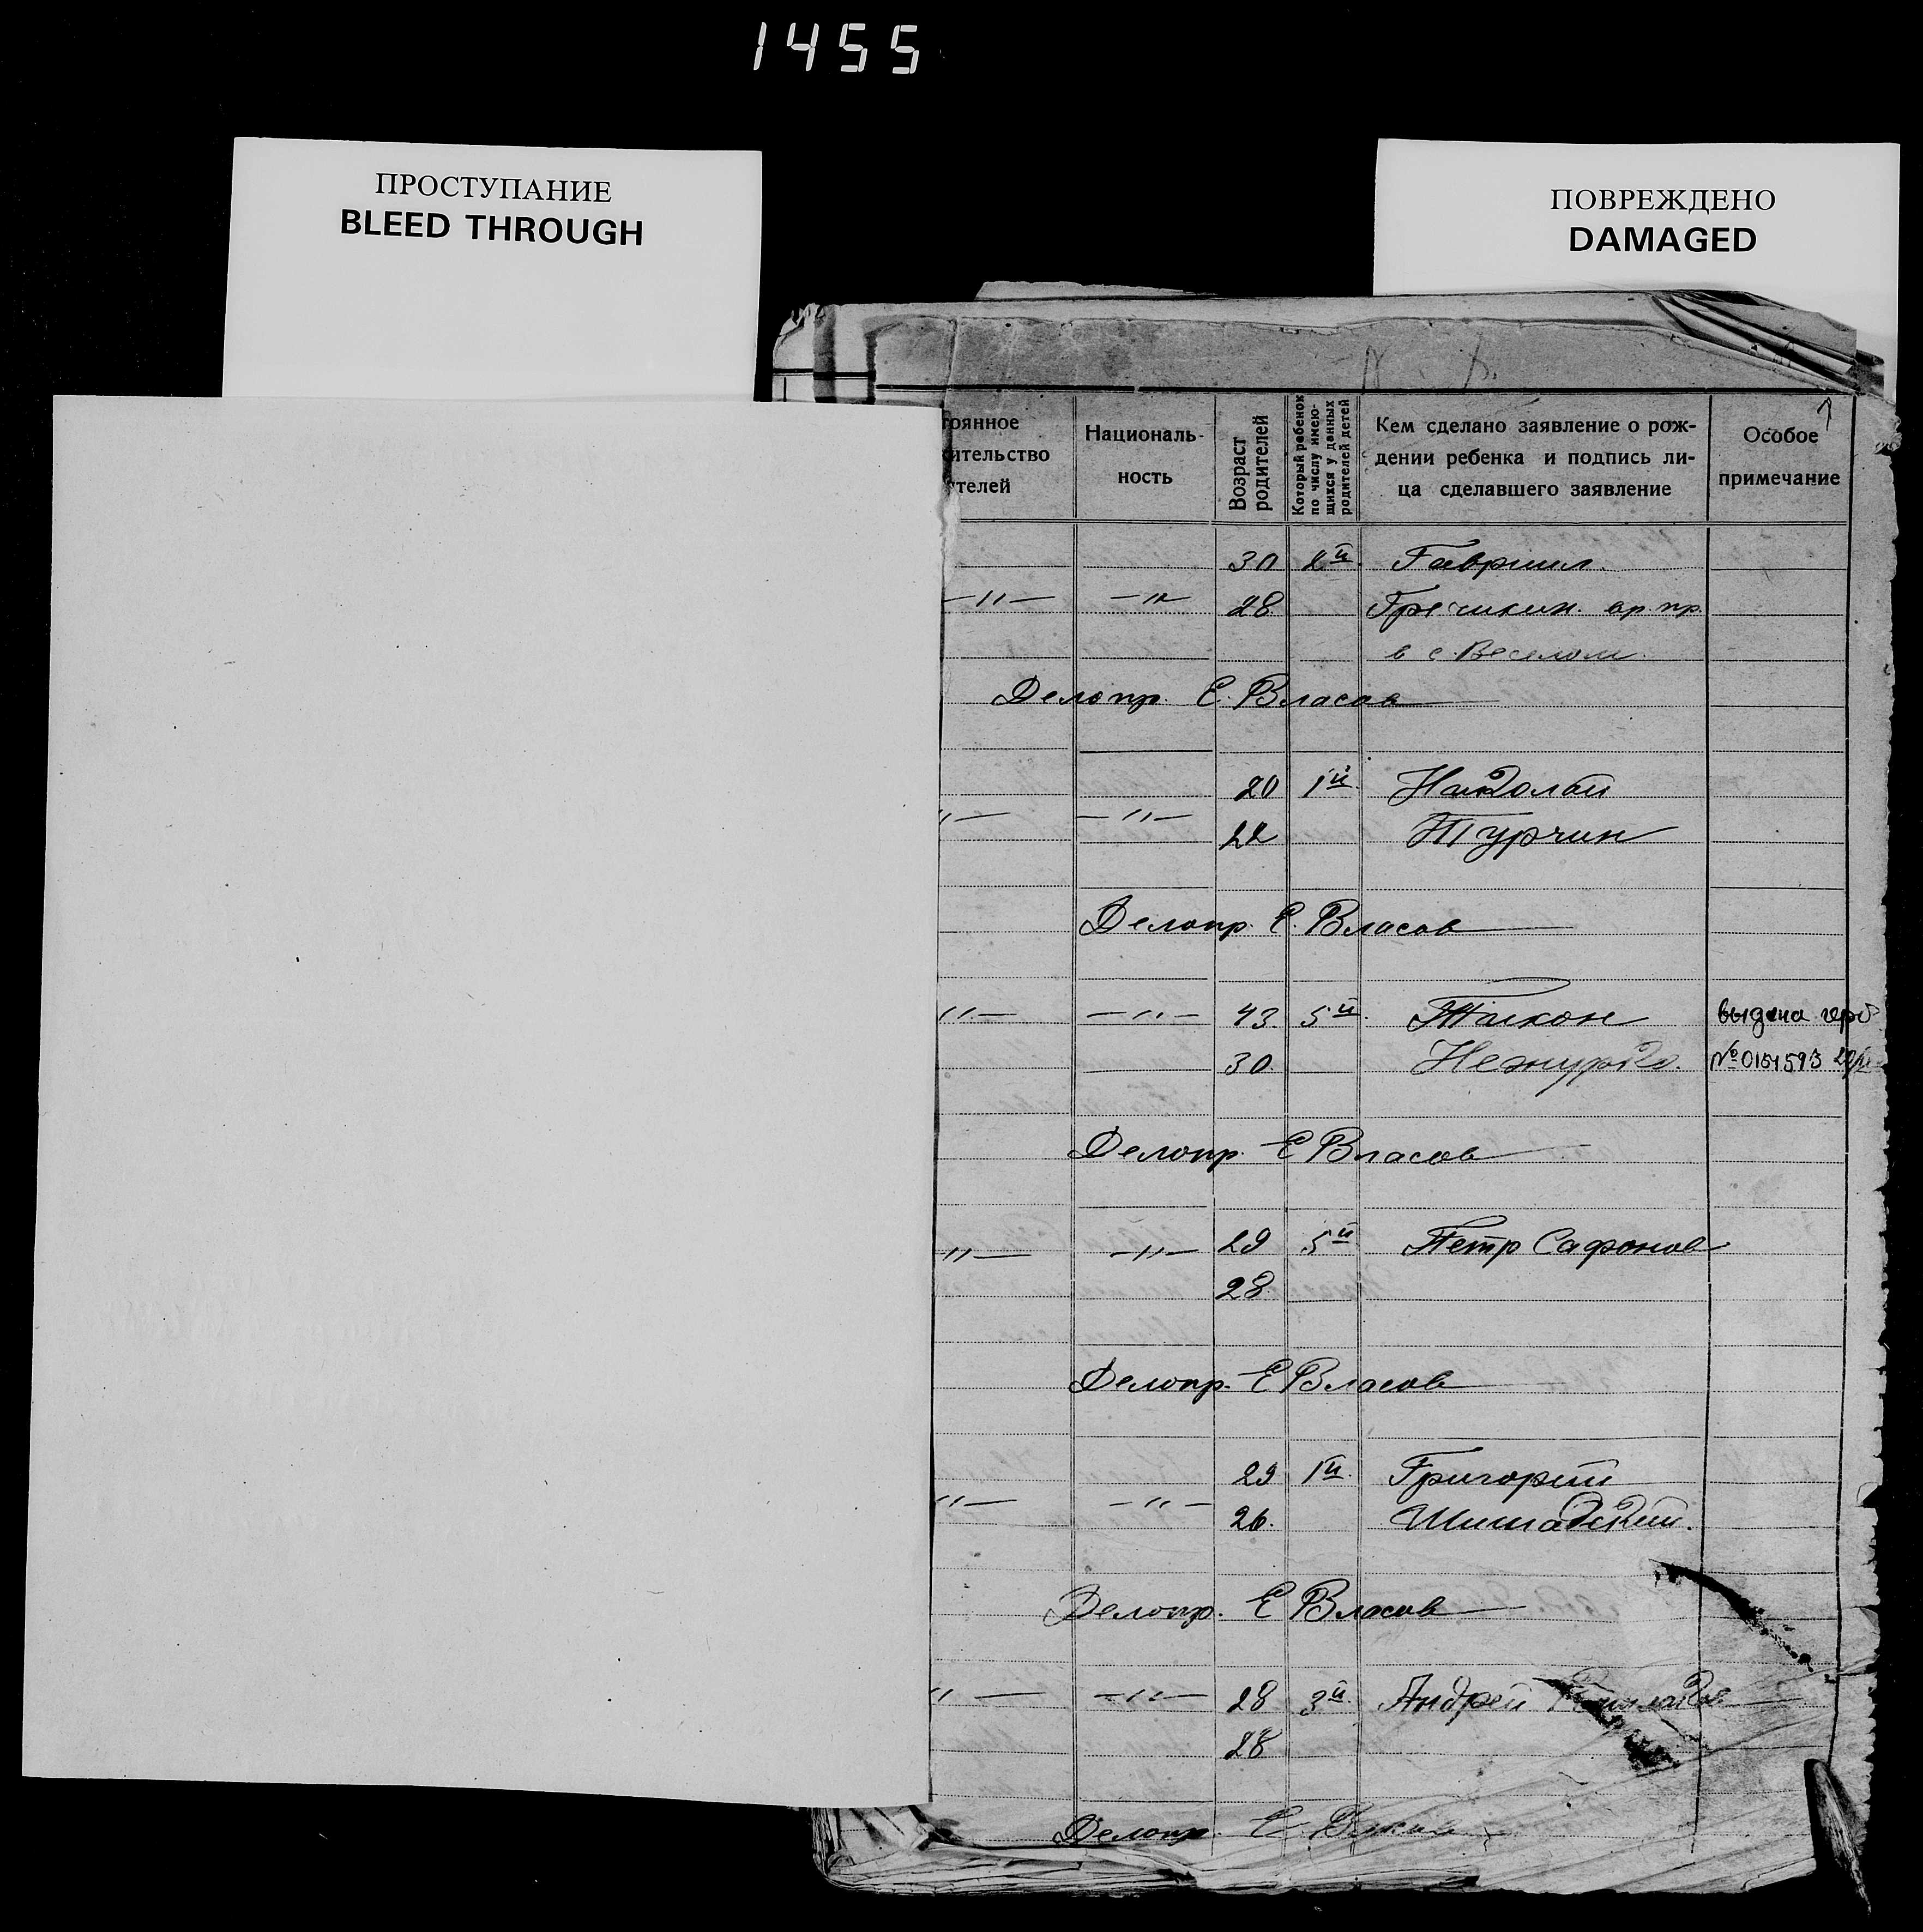 1455
ПРОСТУПАНИЕ
BLEED THROUGH
ПОВРЕЖДЕНО
DAMAGED
тоянное
ительство
телей
Националь-
ность
Возраст
родителей
Который ребенок
по числу имею-
щихся у данных
родителей детей
Кем сделано заявление о рож-
дении ребенка и подпись ли-
ца сделавшего заявление
Особое
примечание
30 2й Гавриил
—〃— —〃— 28 Гречикин
в с. Веселом
Делопр. Е. Власов
20 1й
〃— —〃— 22 Турчин
Делопр. Е. Власов
〃— —〃— 43 5й Тихон выдана
30. №0151593
Делопр. Е Власов
〃— —〃— 29 5й Петр Сафонов
28
Делопр. Е Власов
29 1й Григорий
〃— —〃— 26.
Делопр. Е Власов
〃— —〃— 28 3й Андрей
28
Делопр. Е. Власов